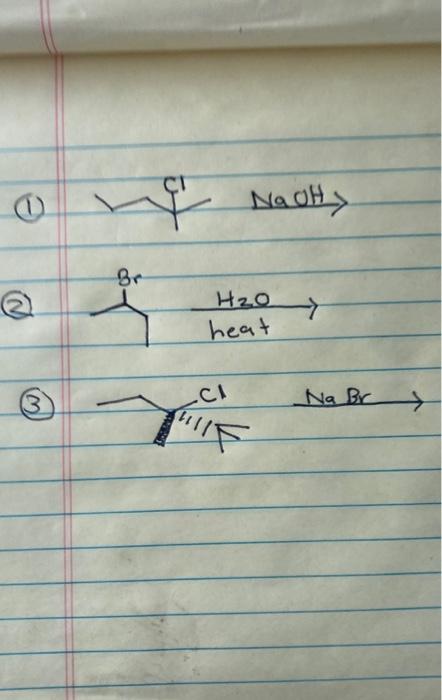 ① Cl NaOH
② Br H2O
heat
③ Cl F NaBr